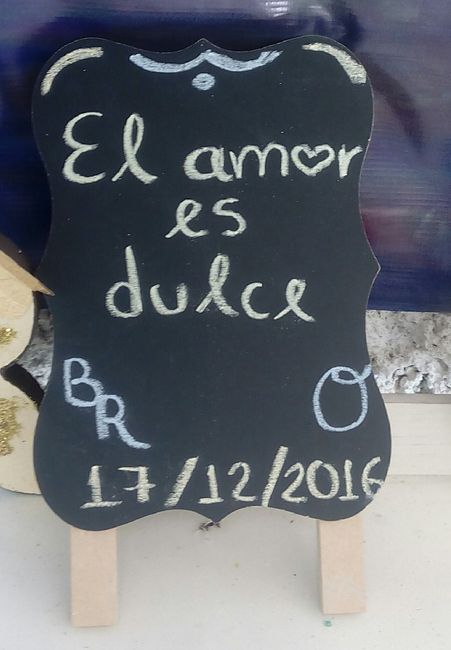 El amor
es
dulce
BR O
17/12/2016